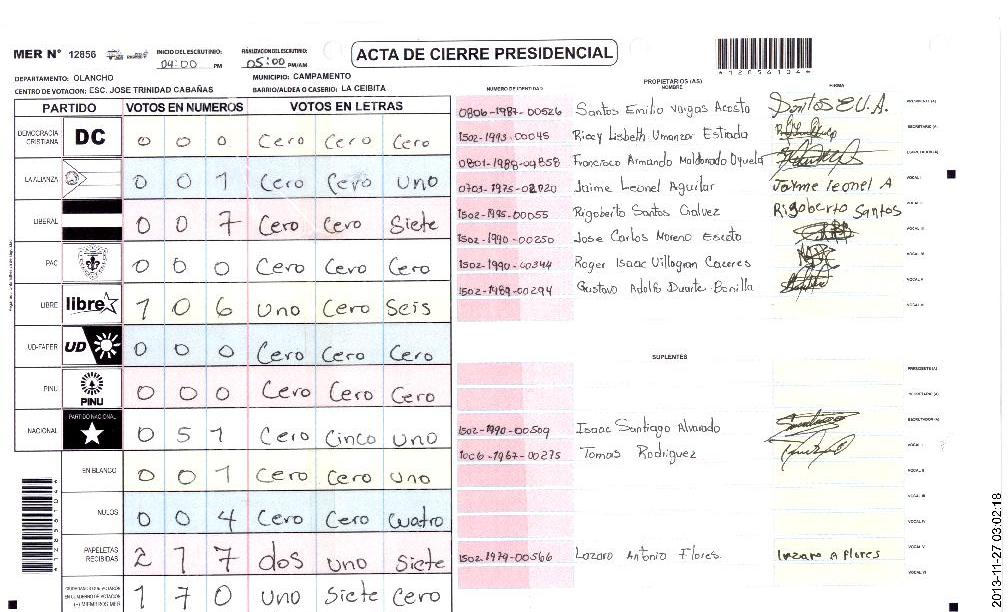 MER N° 12856
INICIO DEL ESCRUTINIO: 04:00 PM
FINALIZACION DEL ESCRUTINIO: 05:00 PM/AM
ACTA DE CIERRE PRESIDENCIAL
DEPARTAMENTO: OLANCHO
MUNICIPIO: CAMPAMENTO
CENTRO DE VOTACION: ESC. JOSE TRINIDAD CABAÑAS
BARRIO/ALDEA O CASERIO: LA CEIBITA
PARTIDO VOTOS EN NUMEROS VOTOS EN LETRAS
DEMOCRACIA CRISTIANA DC 0 0 0 Cero Cero Cero
LA ALIANZA 0 0 1 Cero Cero Uno
LIBERAL 0 0 7 Cero Cero Siete
PAC 0 0 0 Cero Cero Cero
LIBRE libre 1 0 6 Uno Cero Seis
UD-FAPER UD 0 0 0 Cero Cero Cero
PINU PINU 0 0 0 Cero Cero Cero
NACIONAL PARTIDO NACIONAL 0 5 1 Cero Cinco Uno
EN BLANCO 0 0 1 Cero Cero Uno
NULOS 0 0 4 Cero Cero Cuatro
PAPELETAS RECIBIDAS 2 1 7 dos uno Siete
CIUDADANOS QUE VOTARON EN CUADERNO DE VOTACION (+) MIEMBROS MER 1 7 0 Uno Siete Cero
NUMERO DE IDENTIDAD
PROPIETARIOS (AS)
NOMBRE
FIRMA
0806-1987-00526 Santos Emilio Vargas Acosta Santos E.V.A. PRESIDENTE (A)
1502-1993-00045 Riccy Lisbeth Umanzor Estrada SECRETARIO (A)
0801-1988-09858 Francisco Armando Maldonado Oyuela ESCRUTADOR (A)
0703-1975-02020 Jaime Leonel Aguilar Jaime leonel A VOCAL I
1502-1995-00055 Rigoberto Santos Galvez Rigoberto Santos VOCAL II
1502-1990-00250 Jose Carlos Moreno Escoto VOCAL III
1502-1990-00344 Roger Isaac Villagran Caceres VOCAL IV
1502-1989-00294 Gustavo Adolfo Duarte Bonilla VOCAL V
VOCAL VI
SUPLENTES
PRESIDENTE (A)
SECRETARIO (A)
1502-1990-00509 Isaac Santiago Alvarado ESCRUTADOR (A)
1006-1967-00275 Tomas Rodriguez VOCAL I
VOCAL II
VOCAL III
VOCAL IV
1502-1979-00566 Lazaro Antonio Flores. lazaro a flores VOCAL V
VOCAL VI
2013-11-27 03:02:18